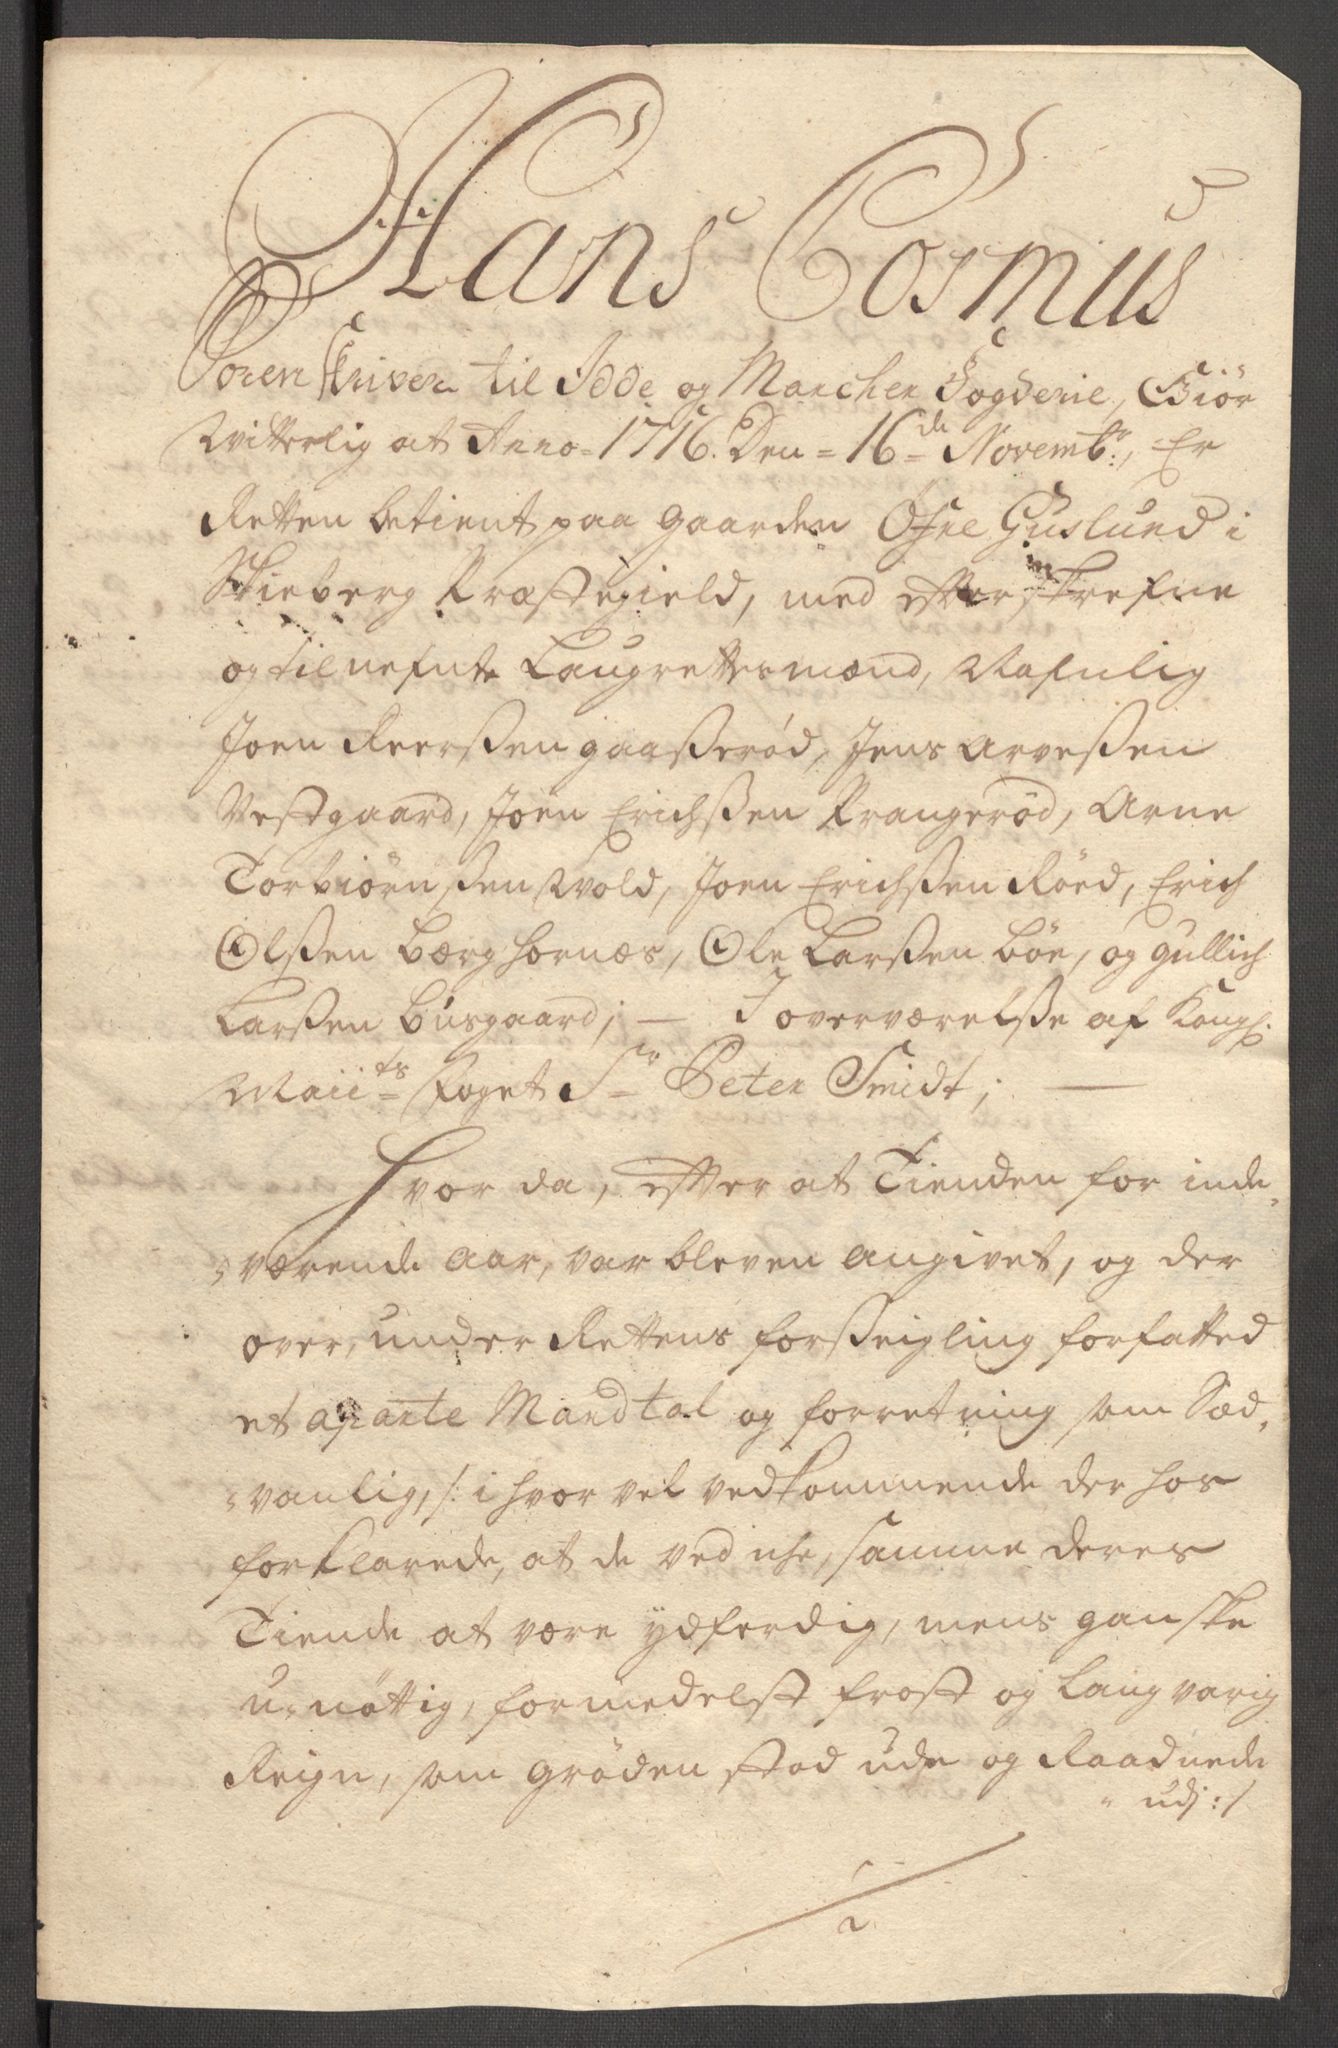 Hans Cosmus
Soren Skriver til Idde og Marcker Fogderie, Giör
Witterlig at Anno 1716. Den 16de Novembr:, Er
Retten betient paa gaarden Øfre Guslund i
Skieberg Præstegield, med efterskrefne
og tilnefnte Laugrettesmænd, Nafnlig
Joen Reerssen gaasserød, Jens Arvessen
Vestgaard, Joen Erichssen Prangerød, Arne
Torbiörnssen Wold, Joen Erichssen Röed, Erich
Olssen Berghornæs, Ole Larssen böe, og Gullich
Larssen busgaard; — I overværelsse af Kongl:
Maiits Foget Sr Peter Smidt; —
Hvor da, efter at Tienden for inde-
-værende Aar, var bleven angivet, og der
over, under Rettens forsseigling forfatted
et aparte Mandtal og forretning som Sæd-
-vanlig, /: i hvor vel vedkommende der hos
forklarede, at de ved ej, samme deres
Tiende at være ydferdig, mens ganske
u-nöttig, formedelst frost og langvarig
Reign, som gröden stod ude og Raadnede
udj :/